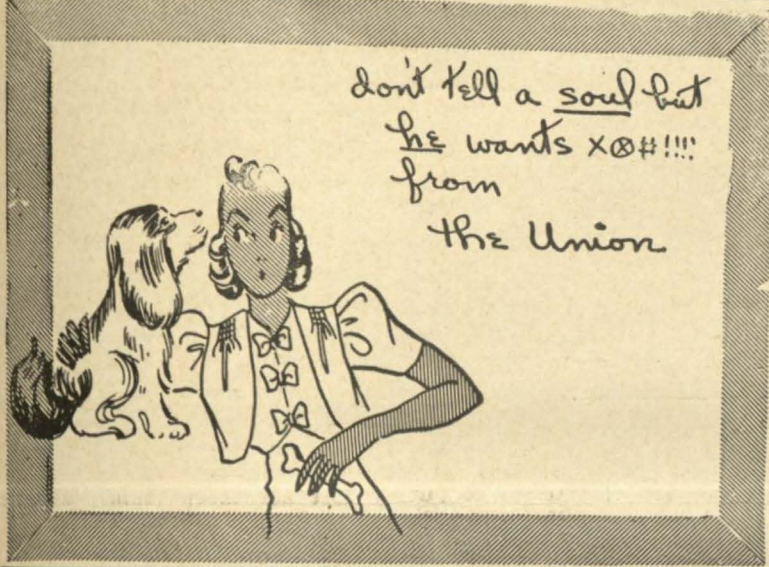 don't tell a soul but
he wants x⊗#!!!!
from
the Union